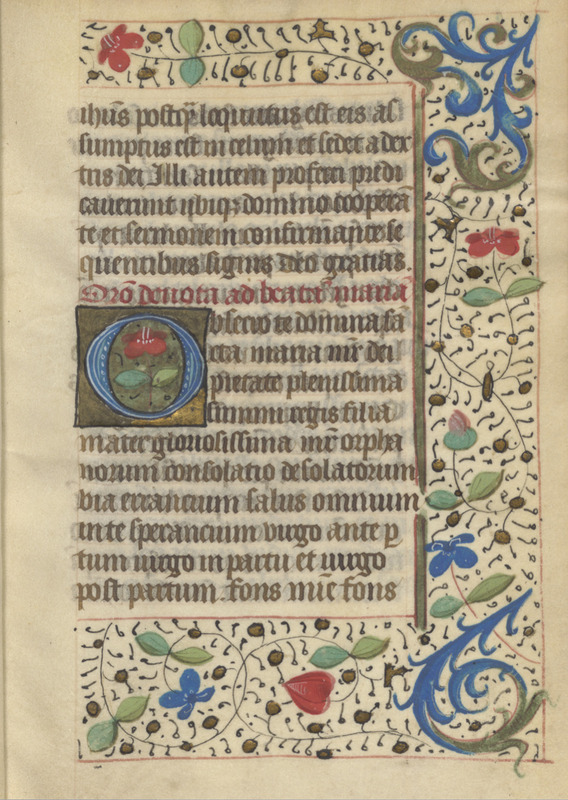 ihūs postq̄ loquutus est eis as
sumptus est in celum et sedet a dex
tris dei Illi autem profecti predi
cauerunt ubiqꝫ domino cooperā
te et sermonem confirmante se
quentibus signis deo gratias
Orō deuota ad beatā mariā
Obsecro te domina sā
cta maria mr̄ dei
pietate plenissima
summi regis filia
mater gloriosissima mr̄ orpha
norum consolatio desolatorum
via errancium salus omnium
in te sperancium virgo ante p̄
tum uirgo in partu et uirgo
post partum. fons mīe fons